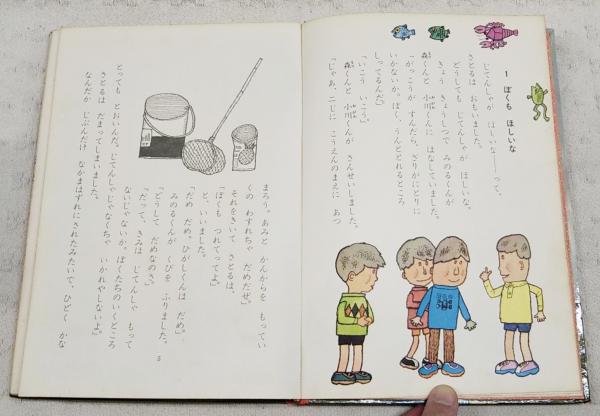 1 ぼくも ほしいな
じてんしゃが ほしいな――って、
さとるは おもいました。
どうしても じてんしゃが ほしいな。
きょう きょうしつで みのるくんが
森くんと 小川くんに はなしていました。
「がっこうが すんだら、ざりがにとりに
いかないか。ぼく、うんととれるところ
しってるんだ」
「いこう いこう」
森くんと 小川くんが さんせいしました。
「じゃあ、二じに こうえんのまえに あつ
まろう。あみと かんからを もってい
くの わすれちゃ だめだぜ。」
それをきいて さとるは、
「ぼくも つれてってよ」
と、いいました。
「だめ だめ。ひがしくんは だめ」
みのるくんが くびを ふりました。
「どうして だめなのさ」
「だって、きみは じてんしゃ もって
ないじゃないか。ぼくたちのいくところ
とっても とおいんだ。じてんしゃじゃなくちゃ いかれやしないよ」
さとるは だまってしまいました。
なんだか じぶんだけ なかまはずれにされたみたいで、ひどく かな
5